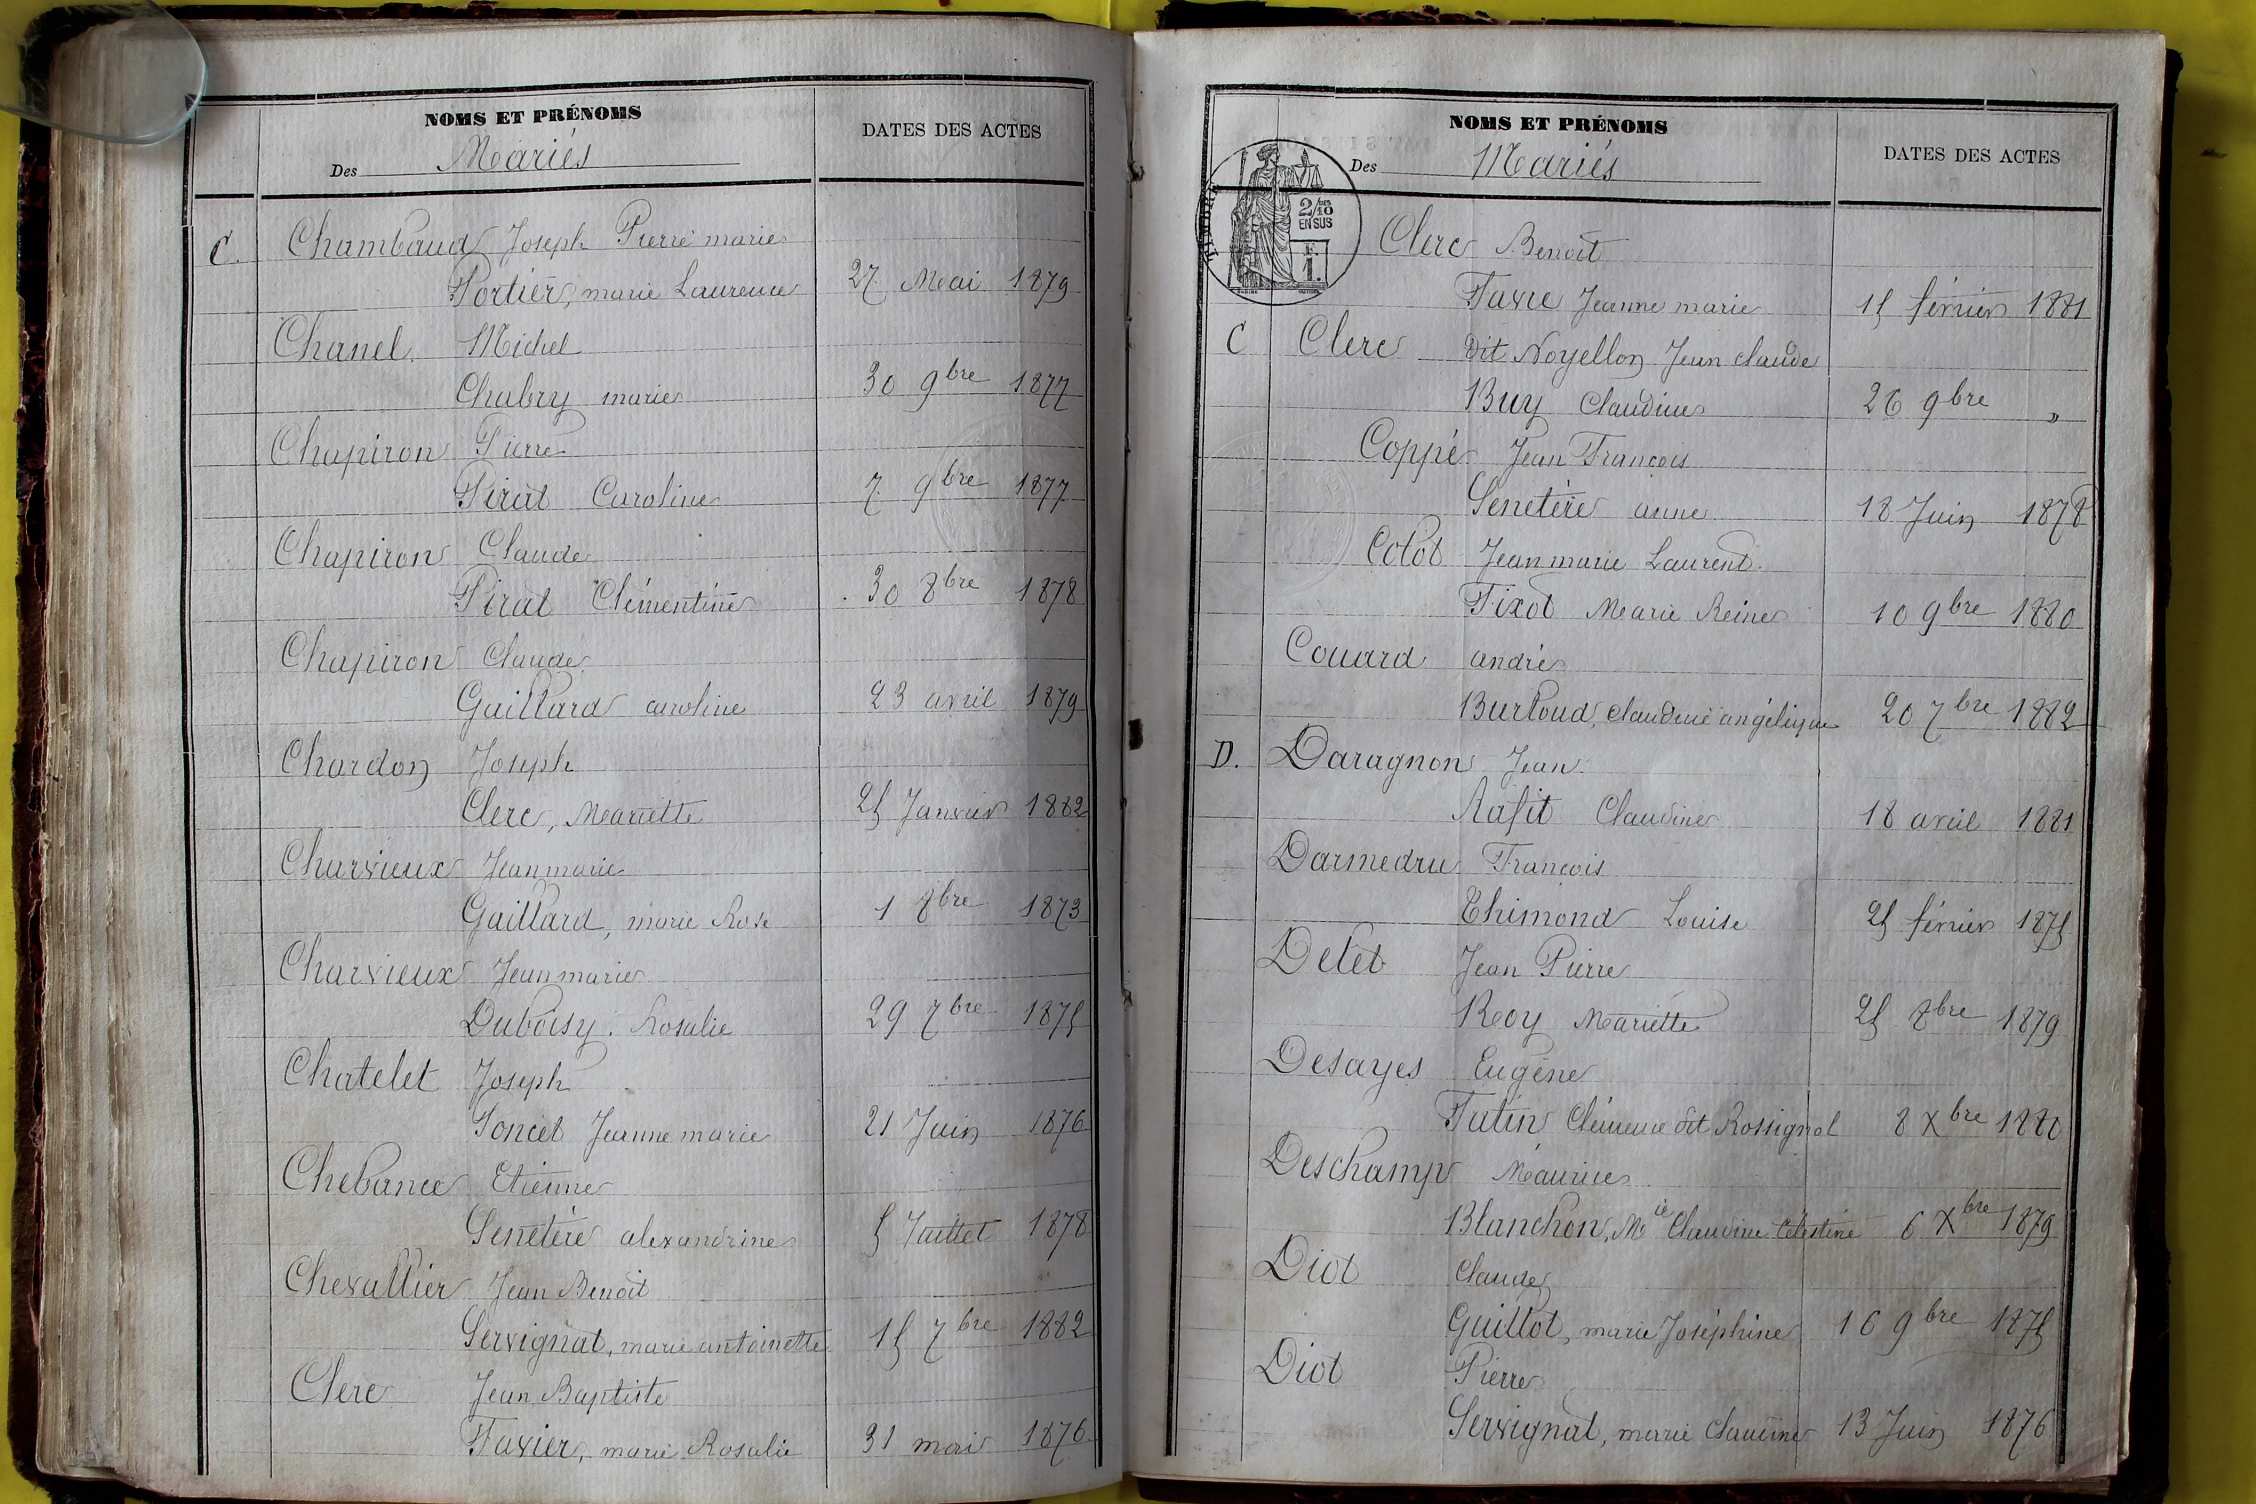 NOMS ET PRÉNOMS
Des Mariés
DATES DES ACTES
C. Chambaud Joseph Pierre marie
Portier, marie Laurence 27 Mai 1879
Chanel Michel
Chabry marie 30 9bre 1877
Chapiron Pierre
Pirat Caroline 7 9bre 1877
Chapiron Claude
Pirat Clémentine 30 8bre 1878
Chapiron Claude
Gaillard caroline 23 avril 1879
Chardon Joseph
Clerc, Mariette 25 Janvier 1882
Charvieux Jean marie
Gaillard, marie Rose 1 8bre 1873
Charvieux Jean marie
Duboisy Rosalie 29 7bre 1875
Chatelet Joseph
Poncet Jeanne marie 21 Juin 1876
Chebance Etienne
Senetère alexandrine 5 Juillet 1878
Chevallier Jean Benoit
Servignat, marie antoinette 15 7bre 1882
Clerc Jean Baptiste
Favier, marie Rosalie 31 mai 1876
NOMS ET PRÉNOMS
Des Mariés
DATES DES ACTES
TIMBRE
2/10 EN SUS
1.
Clerc Benoit
Favre Jeanne marie 15 février 1881
C Clerc dit Noyellon Jean claude
Buy Claudine 26 9bre "
Coppé Jean François
Senetère anne 18 Juin 1878
Colot Jean marie Laurent
Fixot Marie Reine 10 9bre 1880
Couard andré
Burloud, claudine angélique 20 7bre 1882
D. Daragnon Jean
Rafit Claudine 18 avril 1881
Darmedru François
Thimond Louise 25 février 1875
Delet Jean Pierre
Reoy Mariette 25 8bre 1879
Desayes Eugène
Futin Clémence dit Rossignol 8 Xbre 1880
Deschamp Maurice
Blanchon, Mie Claudine Célestine 6 Xbre 1879
Diot Claude
Guillot, marie Joséphine 16 9bre 1875
Diot Pierre
Servignat, marie Claudine 13 Juin 1876